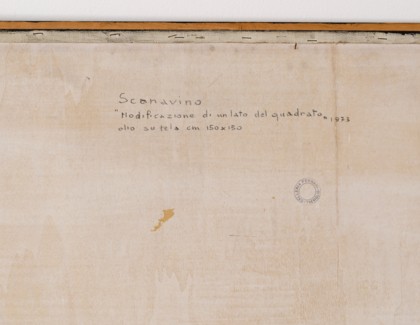 Scanavino
"Modificazione di un lato del quadrato" 1973
olio su tela cm 150x150